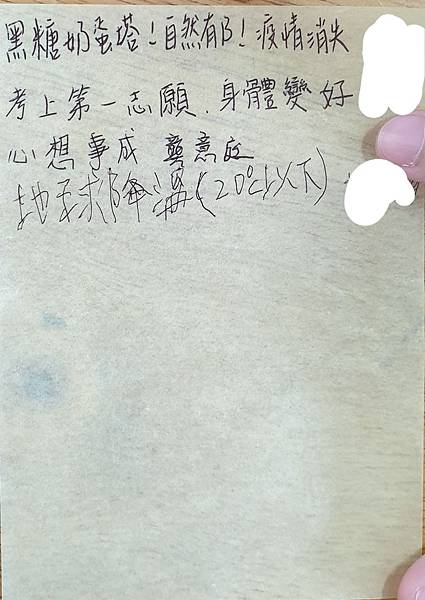 黑糖奶蛋塔!自然郁!疫情消失
考上第一志願.身體變好
心想事成
地球降溫(20℃以下)